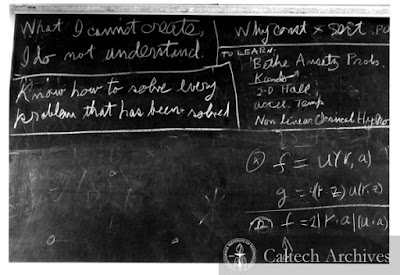 What I cannot create,
I do not understand.
Know how to solve every
problem that has been solved
Why const × sort. po
TO LEARN:
Bethe Ansatz Prob.
Kondo
2-D Hall
accel. Temp
Non linear Classical Hydro
f = u(r, a)
g = 4(r·z) u(r, z)
f = 2|r·a|(u·a)
Caltech Archives